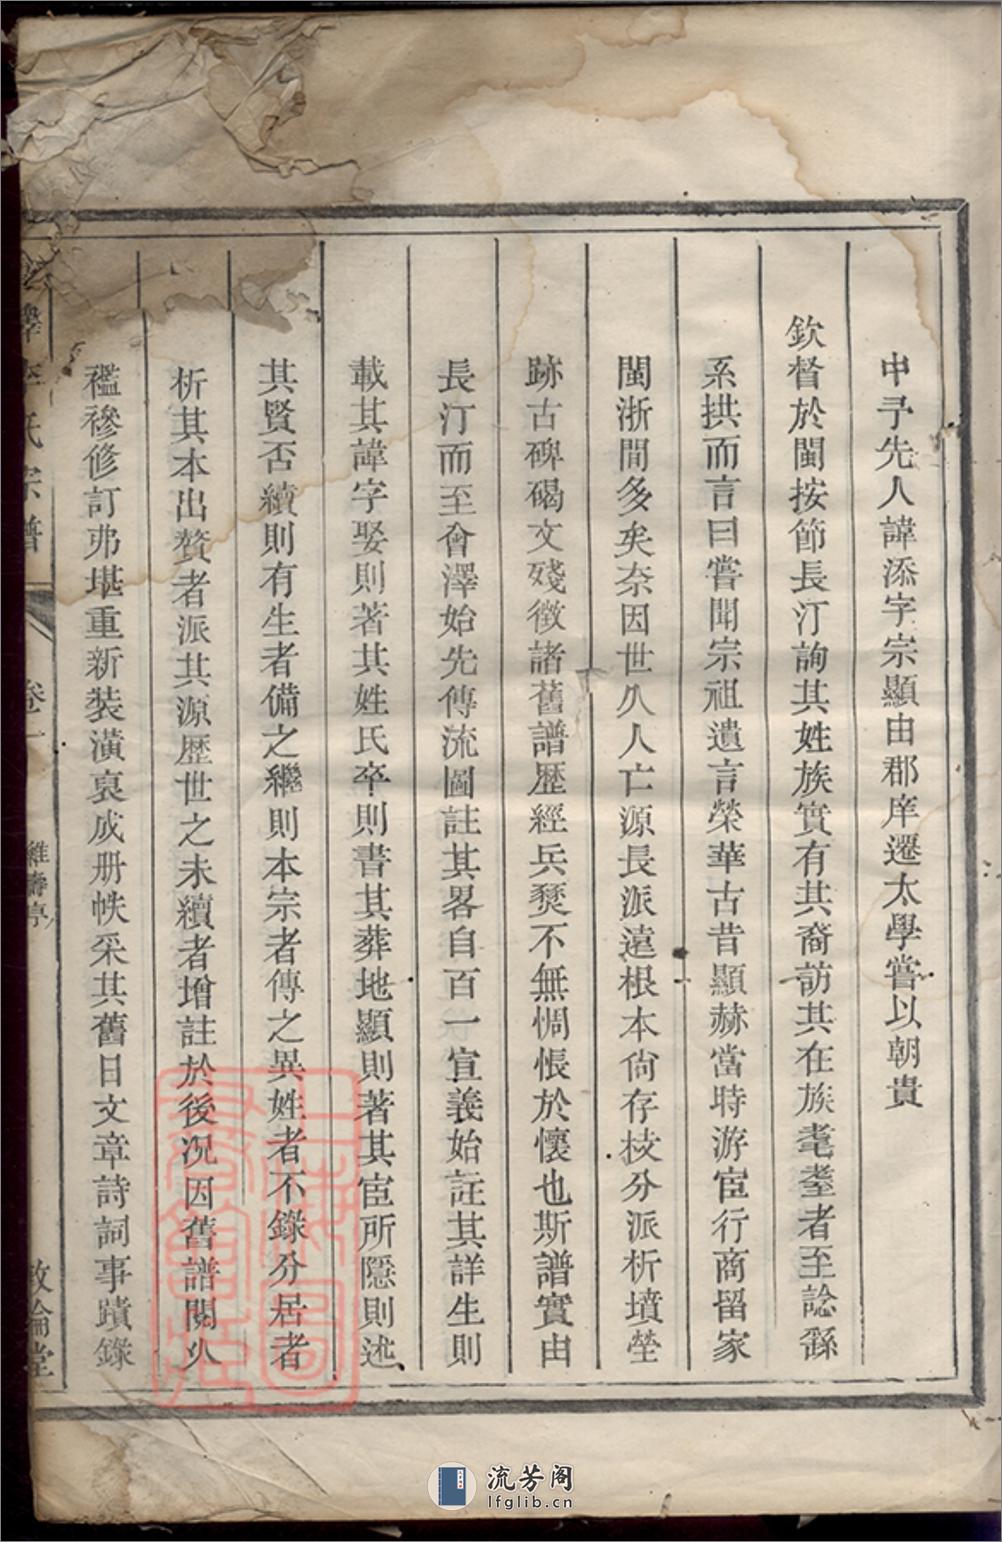 申予先人諱添字宗顯由郡庠遷太學嘗以朝貴
欽督於閩按節長汀詢其姓族實有其裔訪其在族耄耋者至諗繇
系拱而言曰嘗聞宗祖遺言榮華古昔顯赫當時游宦行商留家
閩浙間多矣奈因世久人亡源長派遠根本尙存枝分派析墳塋
跡古碑碣文殘徵諸舊譜歷經兵燹不無惆悵於懷也斯譜實由
長汀而至會澤始先傳流圖註其畧自百一宣義始註其詳生則
載其諱字娶則著其姓氏卒則書其葬地顯則著其宦所隱則述
其賢否續則有生者備之繼則本宗者傳之異姓者不錄分居者
析其本出贅者派其源歷世之未續者增註於後況因舊譜閱火
襤襂修訂弗堪重新装潢裒成册帙采其舊日文章詩詞事蹟錄
氏宗譜
卷一
維壽亭
敘倫堂
流芳阁
lfglib.cn